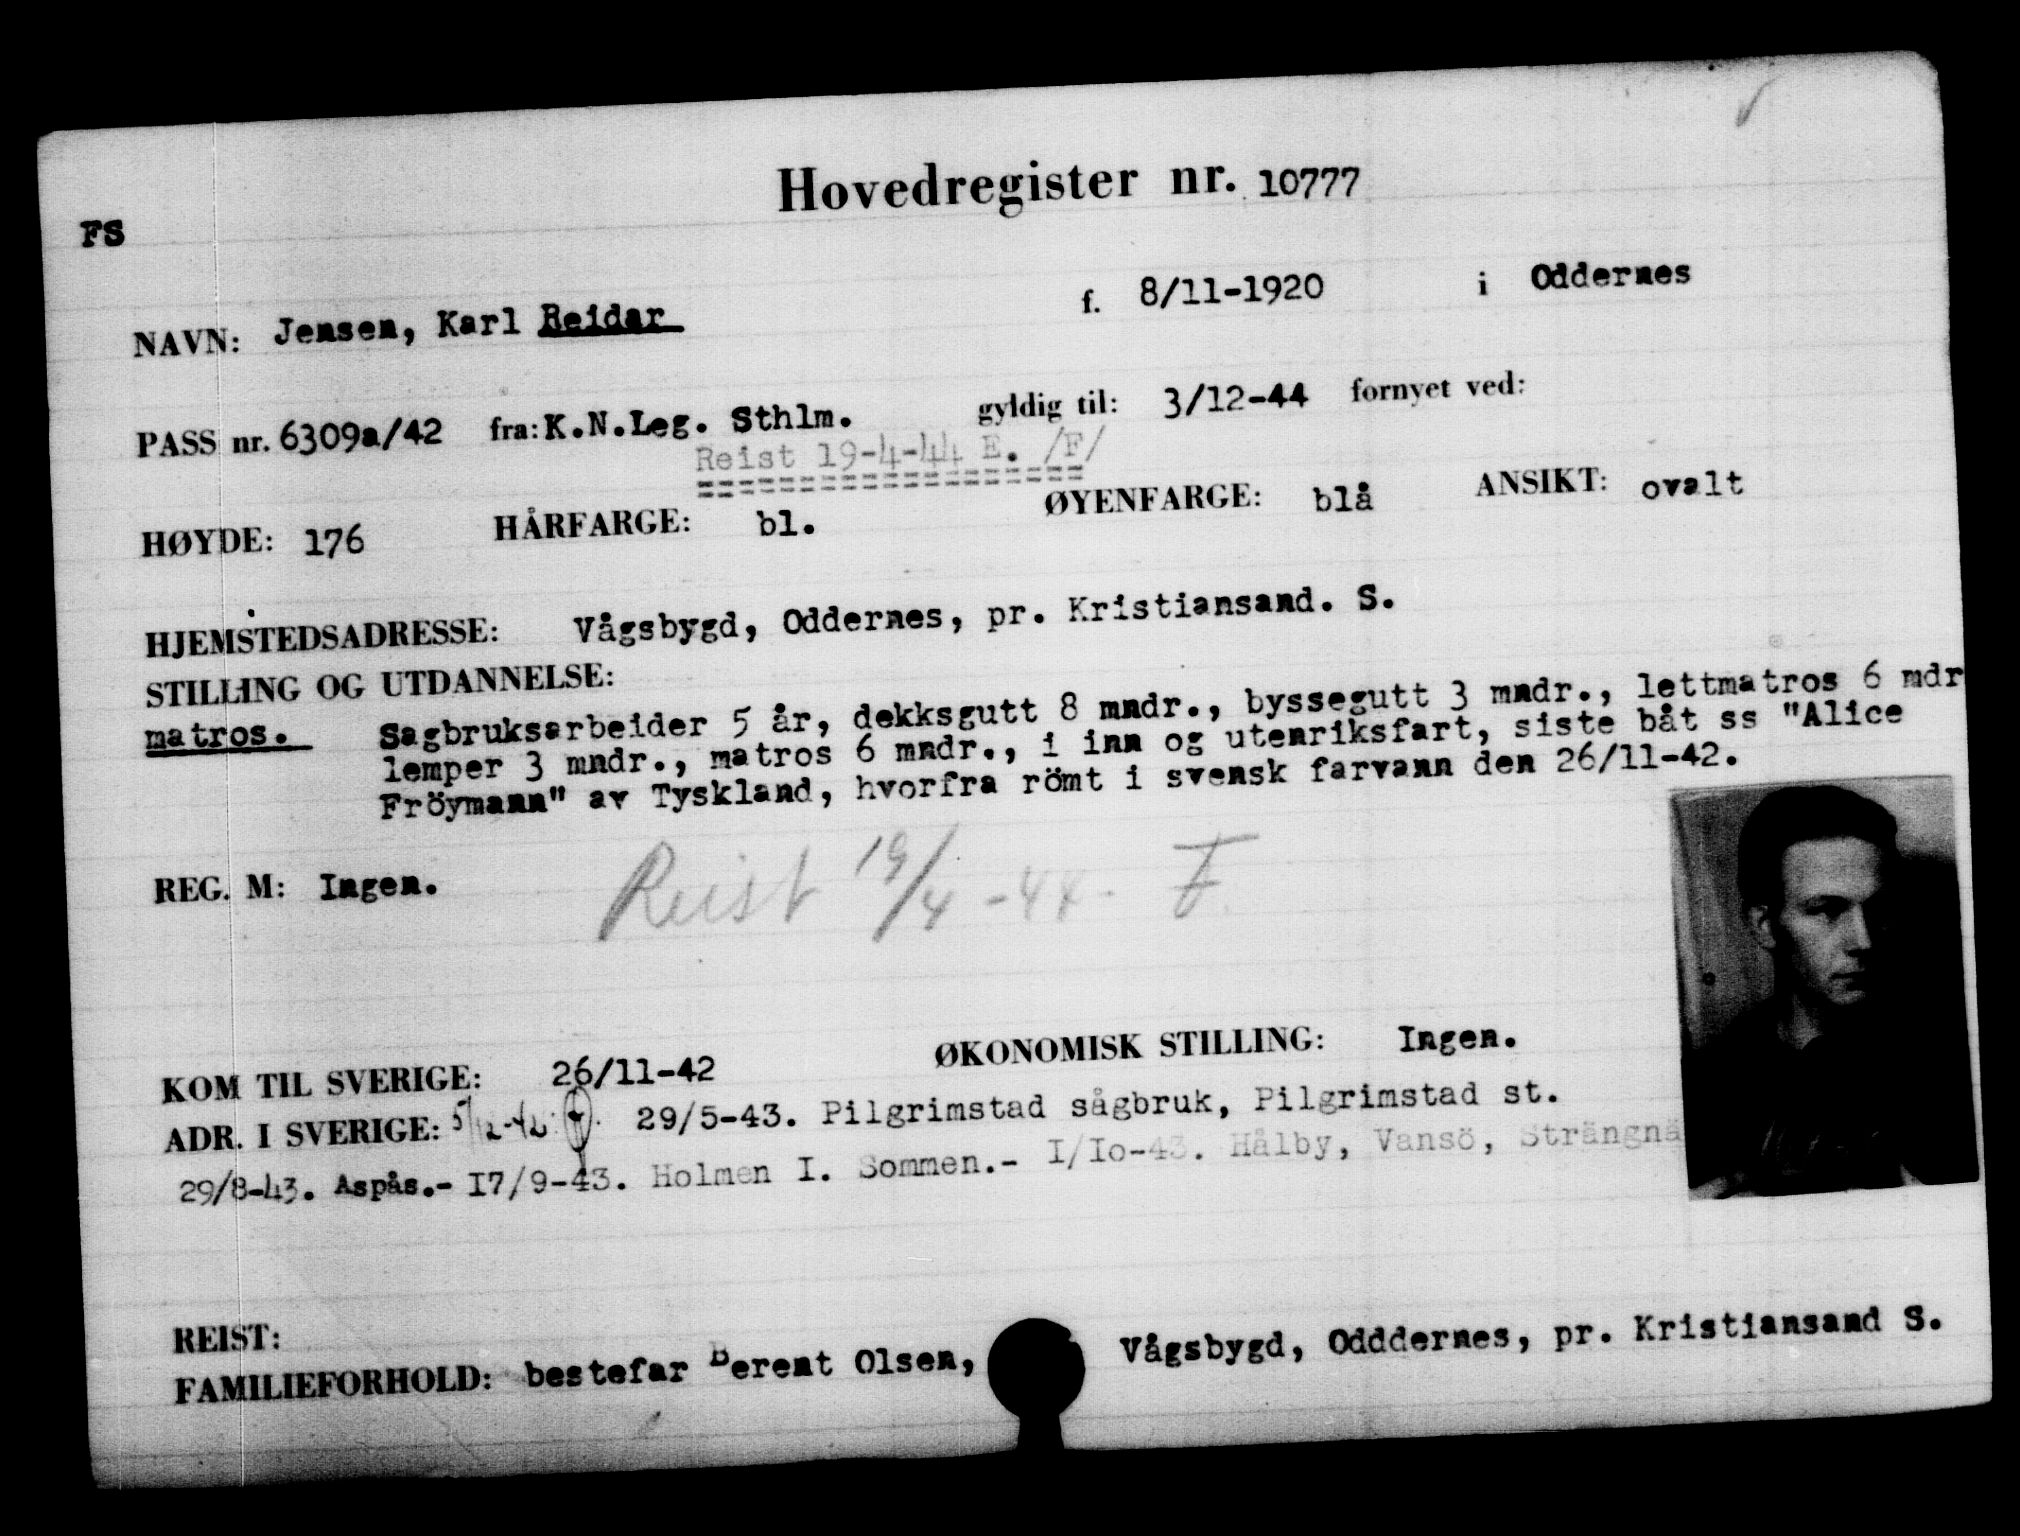 Hovedregister nr. 10777
FS
NAVN: Jensen, Karl Reidar f. 8/11-1920 i Oddernes
PASS nr. 6309a/42 fra: K.N.Leg. Sthlm. gyldig til: 3/12-44 fornyet ved:
Reist 19-4-44 E. /F/
HØYDE: 176 HÅRFARGE: bl. ØYENFARGE: blå ANSIKT: ovalt
HJEMSTEDSADRESSE: Vågsbygd, Oddernes, pr. Kristiansand. S.
STILLING OG UTDANNELSE:
matros. Sagbruksarbeider 5 år, dekksgutt 8 mndr., byssegutt 3 mndr., lettmatros 6 mdr
lemper 3 mndr., matros 6 mndr., i inn og utenriksfart, siste båt ss "Alice
Fröymann" av Tyskland, hvorfra römt i svensk farvann den 26/11-42.
REG. M: Ingen.
Reist 19/4-44. F.
KOM TIL SVERIGE: 26/11-42 ØKONOMISK STILLING: Ingen.
ADR. I SVERIGE: 5/12-42. 29/5-43. Pilgrimstad sågbruk, Pilgrimstad st.
29/8-43. Aspås.- I7/9-43. Holmen I. Sommen.- I/Io-43. Hålby, Vansö, Strängnä
REIST:
FAMILIEFORHOLD: bestefar Berent Olsen, Vågsbygd, Odddernes, pr. Kristiansand S.